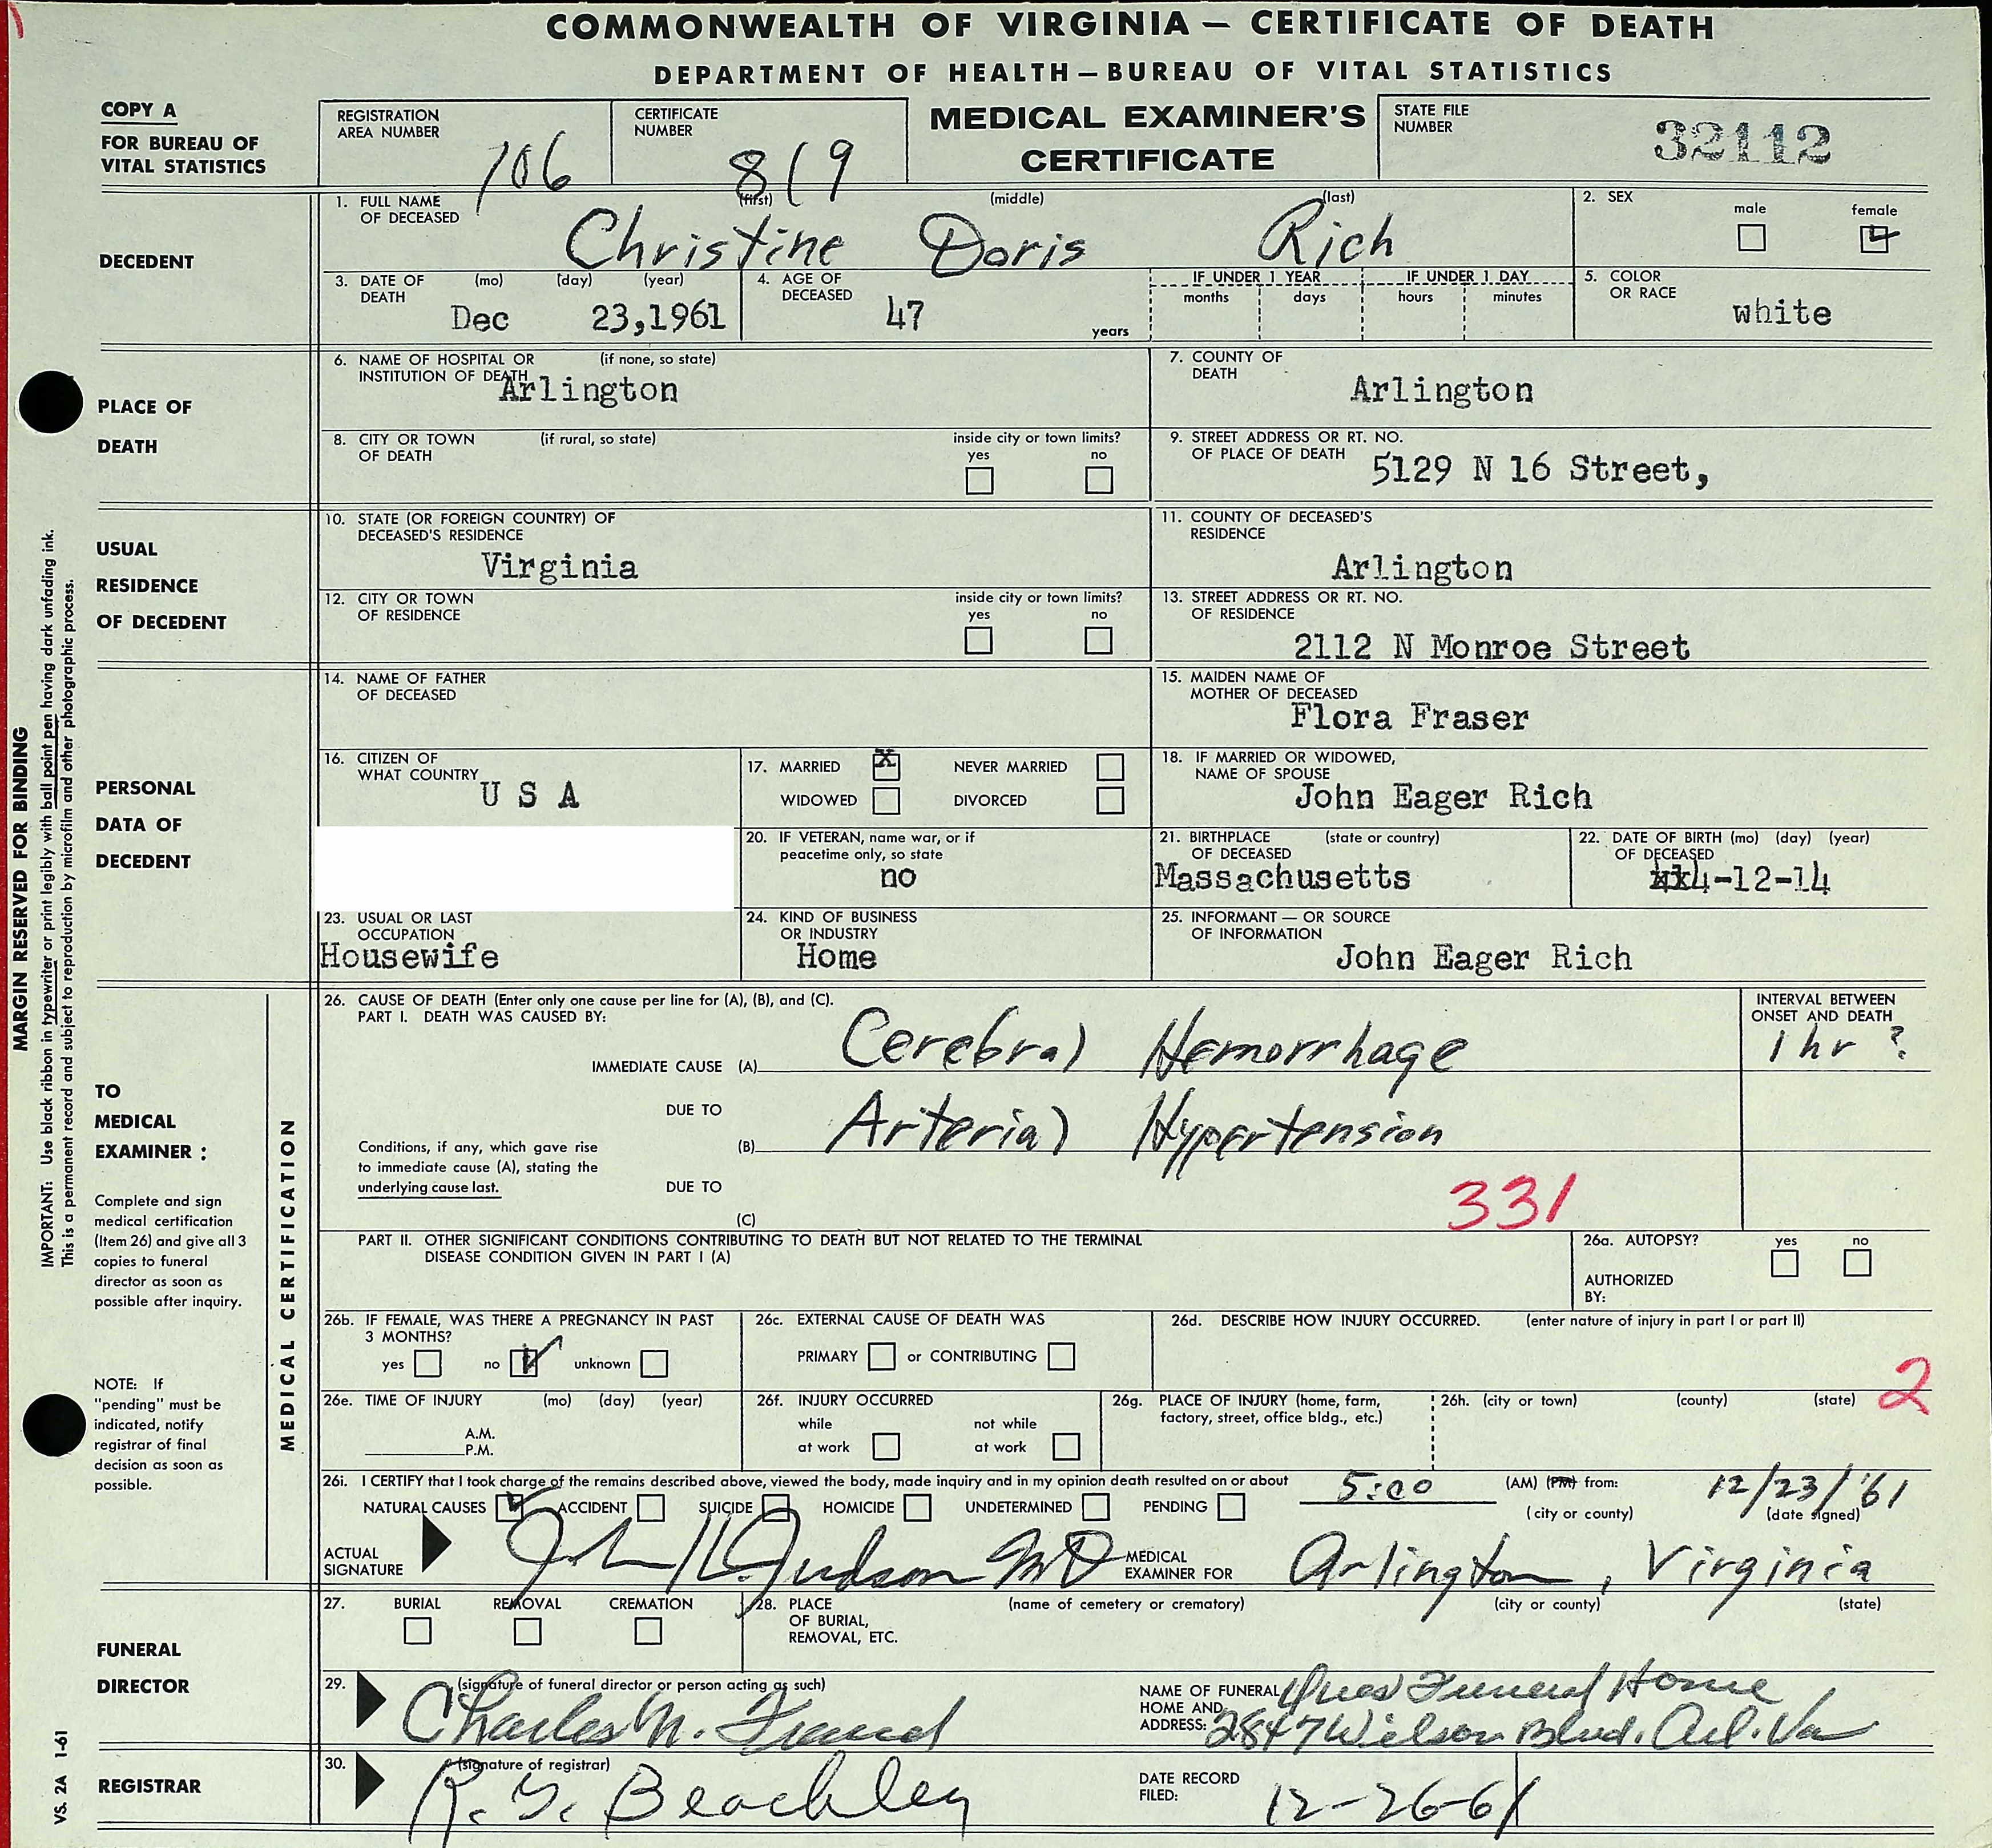 COMMONWEALTH OF VIRGINIA — CERTIFICATE OF DEATH
DEPARTMENT OF HEALTH — BUREAU OF VITAL STATISTICS
COPY A
FOR BUREAU OF
VITAL STATISTICS
REGISTRATION
AREA NUMBER
106
CERTIFICATE
NUMBER
819
MEDICAL EXAMINER'S
CERTIFICATE
STATE FILE
NUMBER
32112
DECEDENT
1. FULL NAME
OF DECEASED
(first) (middle) (last)
Christine Doris Rich
2. SEX
male female
3. DATE OF (mo) (day) (year)
DEATH
Dec 23,1961
4. AGE OF
DECEASED
47
years
IF UNDER 1 YEAR
months days
IF UNDER 1 DAY
hours minutes
5. COLOR
OR RACE
white
PLACE OF
DEATH
6. NAME OF HOSPITAL OR (if none, so state)
INSTITUTION OF DEATH
Arlington
7. COUNTY OF
DEATH
Arlington
8. CITY OR TOWN (if rural, so state)
OF DEATH
inside city or town limits?
yes no
9. STREET ADDRESS OR RT. NO.
OF PLACE OF DEATH
5129 N 16 Street,
USUAL
RESIDENCE
OF DECEDENT
10. STATE (OR FOREIGN COUNTRY) OF
DECEASED'S RESIDENCE
Virginia
11. COUNTY OF DECEASED'S
RESIDENCE
Arlington
12. CITY OR TOWN
OF RESIDENCE
inside city or town limits?
yes no
13. STREET ADDRESS OR RT. NO.
OF RESIDENCE
2112 N Monroe Street
PERSONAL
DATA OF
DECEDENT
14. NAME OF FATHER
OF DECEASED
15. MAIDEN NAME OF
MOTHER OF DECEASED
Flora Fraser
16. CITIZEN OF
WHAT COUNTRY
U S A
17. MARRIED X NEVER MARRIED
WIDOWED DIVORCED
18. IF MARRIED OR WIDOWED,
NAME OF SPOUSE
John Eager Rich
20. IF VETERAN, name war, or if
peacetime only, so state
no
21. BIRTHPLACE (state or country)
OF DECEASED
Massachusetts
22. DATE OF BIRTH (mo) (day) (year)
OF DECEASED
4-12-14
23. USUAL OR LAST
OCCUPATION
Housewife
24. KIND OF BUSINESS
OR INDUSTRY
Home
25. INFORMANT — OR SOURCE
OF INFORMATION
John Eager Rich
TO
MEDICAL
EXAMINER :
Complete and sign
medical certification
(Item 26) and give all 3
copies to funeral
director as soon as
possible after inquiry.
NOTE: If
"pending" must be
indicated, notify
registrar of final
decision as soon as
possible.
MEDICAL CERTIFICATION
26. CAUSE OF DEATH (Enter only one cause per line for (A), (B), and (C).
PART I. DEATH WAS CAUSED BY:
INTERVAL BETWEEN
ONSET AND DEATH
IMMEDIATE CAUSE (A) Cerebral Hemorrhage
1 hr ?
DUE TO
(B) Arterial Hypertension
Conditions, if any, which gave rise
to immediate cause (A), stating the
underlying cause last.
DUE TO
(C)
331
PART II. OTHER SIGNIFICANT CONDITIONS CONTRIBUTING TO DEATH BUT NOT RELATED TO THE TERMINAL
DISEASE CONDITION GIVEN IN PART I (A)
26a. AUTOPSY? yes no
AUTHORIZED
BY:
26b. IF FEMALE, WAS THERE A PREGNANCY IN PAST
3 MONTHS?
yes no unknown
26c. EXTERNAL CAUSE OF DEATH WAS
PRIMARY or CONTRIBUTING
26d. DESCRIBE HOW INJURY OCCURRED. (enter nature of injury in part I or part II)
2
26e. TIME OF INJURY (mo) (day) (year)
A.M.
P.M.
26f. INJURY OCCURRED
while not while
at work at work
26g. PLACE OF INJURY (home, farm,
factory, street, office bldg., etc.)
26h. (city or town) (county) (state)
26i. I CERTIFY that I took charge of the remains described above, viewed the body, made inquiry and in my opinion death resulted on or about 5:00 (AM) (PM) from:
12/23/'61
NATURAL CAUSES ACCIDENT SUICIDE HOMICIDE UNDETERMINED PENDING
(city or county) (date signed)
ACTUAL
SIGNATURE
John H Judson MD
MEDICAL
EXAMINER FOR
Arlington, Virginia
FUNERAL
DIRECTOR
27. BURIAL REMOVAL CREMATION
28. PLACE
OF BURIAL,
REMOVAL, ETC.
(name of cemetery or crematory) (city or county) (state)
29. (signature of funeral director or person acting as such)
Charles N.
NAME OF FUNERAL
HOME AND
ADDRESS:
Ives Funeral Home
2847 Wilson Blvd. Arl. Va
REGISTRAR
30. (signature of registrar)
Beachley
DATE RECORD
FILED:
12-26-61
MARGIN RESERVED FOR BINDING
IMPORTANT: Use black ribbon in typewriter or print legibly with ball point pen having dark unfading ink.
This is a permanent record and subject to reproduction by microfilm and other photographic process.
VS. 2A 1-61